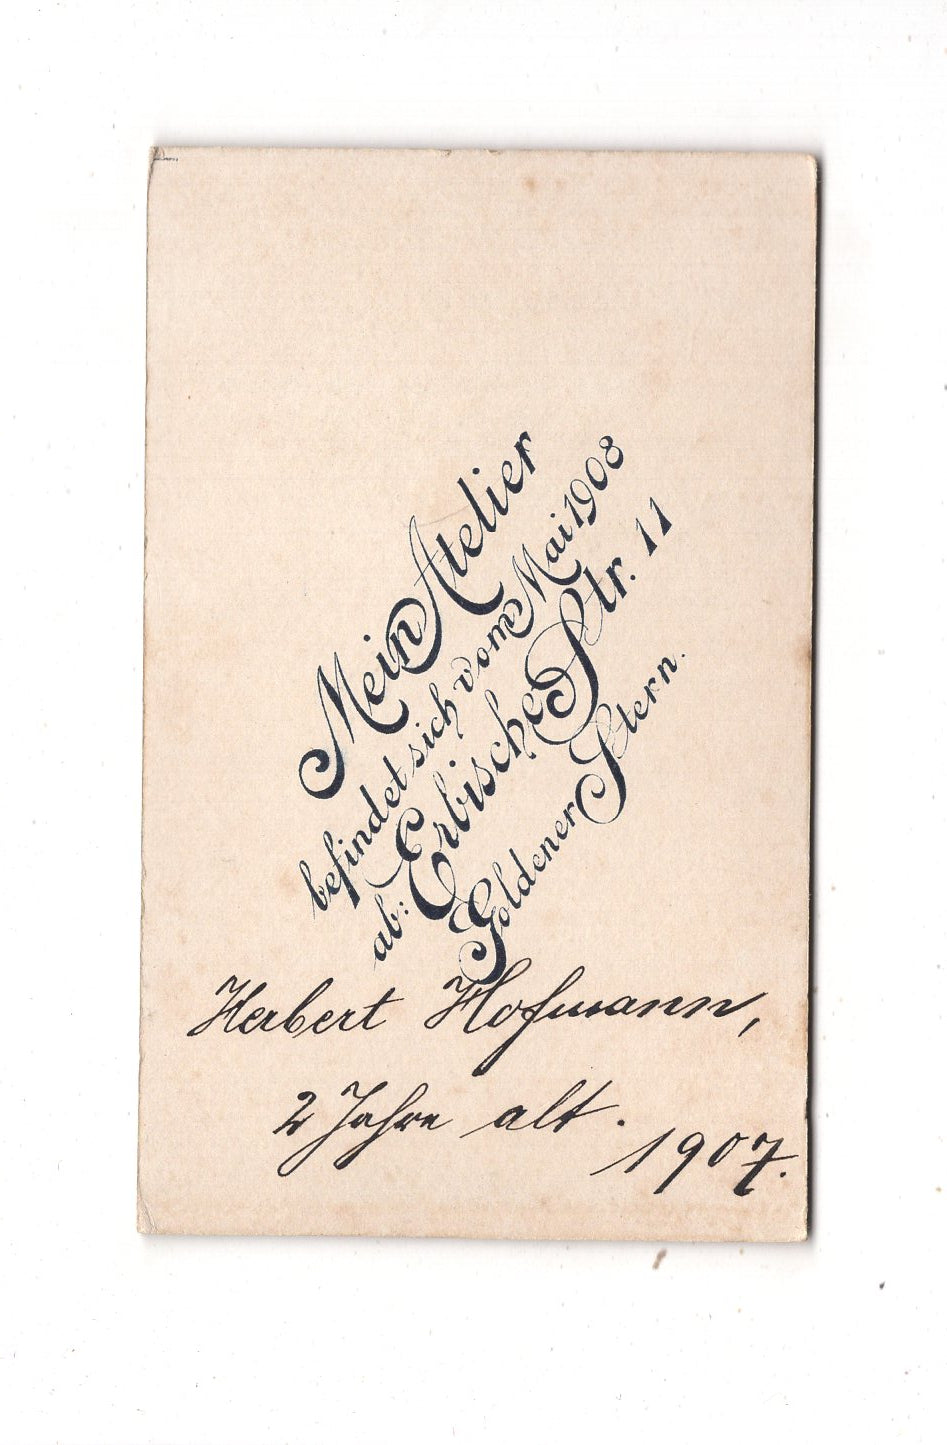 Mein Atelier
befindet sich vom Mai 1908
ab: Erbische Str. 11
Goldener Stern.
Herbert Hofmann,
2 Jahre alt.
1907.